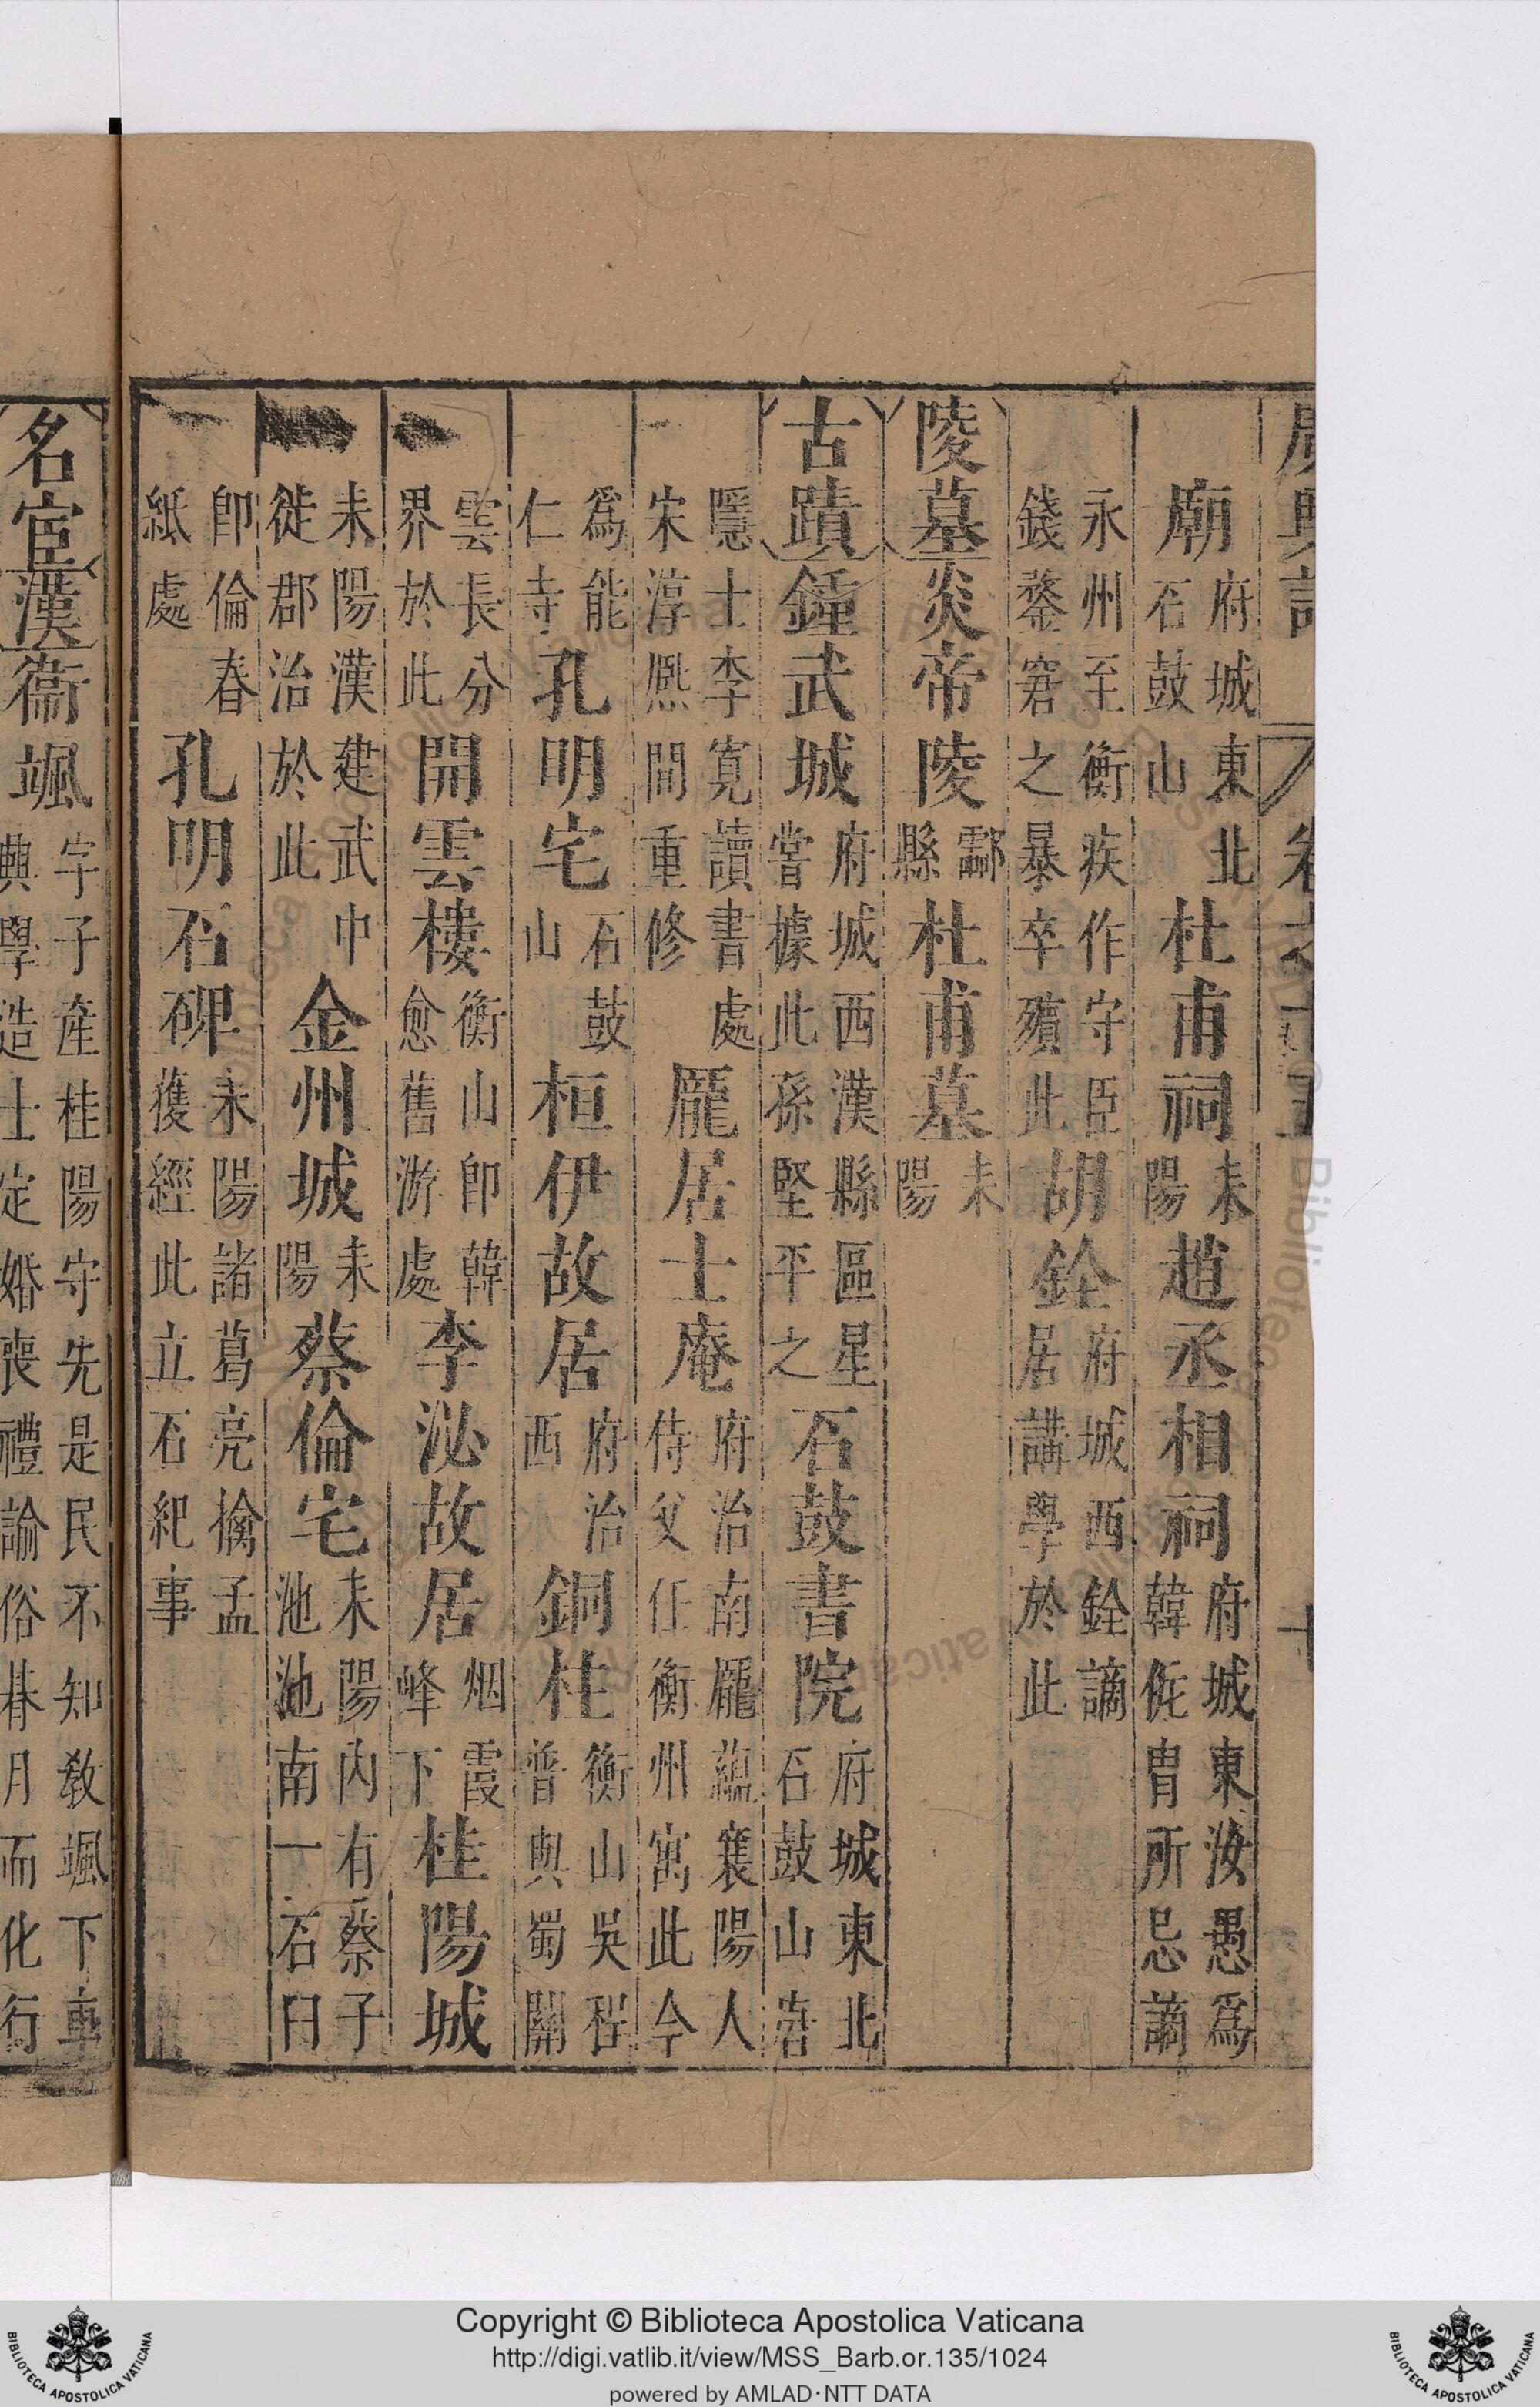 廟府城東北石鼓山杜甫祠耒陽趙丞相祠府城東汝愚為韓侂胄所忌謫
永州至衡疾作守臣錢鍪窘之暴卒殯此胡銓府城西銓謫居講學於此
陵墓炎帝陵酃縣杜甫墓耒陽
古蹟鍾武城府城西漢縣區星嘗據此孫堅平之石鼓書院府城東北石鼓山唐
隱士李寬讀書處宋淳熈間重修龐居士庵府治南龐蘊襄陽人侍父任衡州寓此今
爲能仁寺孔明宅石鼓山桓伊故居府治西銅柱衡山吳程普與蜀關
雲長分界於此開雲樓衡山卽韓愈舊游處李泌故居烟霞峰下桂陽城
耒陽漢建武中徙郡治於此金州城耒陽蔡倫宅耒陽內有蔡子池池南一石臼
卽倫舂紙處孔明石碑耒陽諸葛亮擒孟獲經此立石紀事
名宦漢衞颯字子產桂陽守先是民不知敎颯下車興學造士定婚喪禮諭俗朞月而化行
Copyright © Biblioteca Apostolica Vaticana
http://digi.vatlib.it/view/MSS_Barb.or.135/1024
powered by AMLAD·NTT DATA
BIBLIOTECA APOSTOLICA VATICANA
BIBLIOTECA APOSTOLICA VATICANA